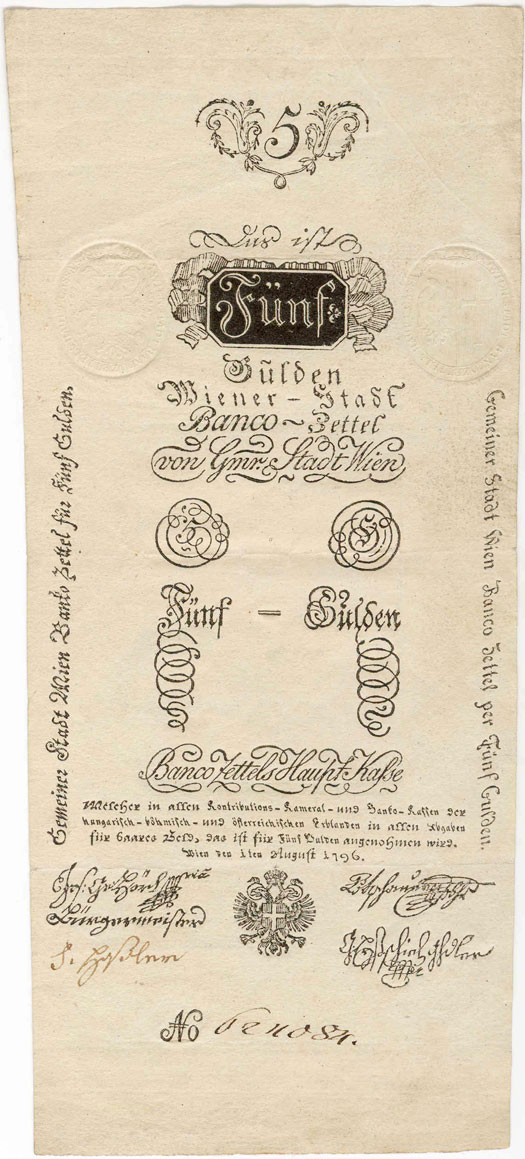 5
Das ist
Fünf
Gulden
Wiener - Stadt
Banco ~ Zettel
von Gmr. Stadt Wien
5 G
Fünf - Gulden
Banco Zettels Haupt-Kasse
Welcher in allen Kontributions-Kameral-und Banko-Kassen der
hungarisch-böhmisch-und österreichischen Erblanden in allen Abgaben
für baares Geld, das ist für Fünf Gulden angenohmen wird.
Wien den 1ten August 1796.
Gemeiner Stadt Wien Banko Zettel für Fünf Gulden.
Gemeiner Stadt Wien Banco Zettel per Fünf Gulden.
Bürgermeister
No